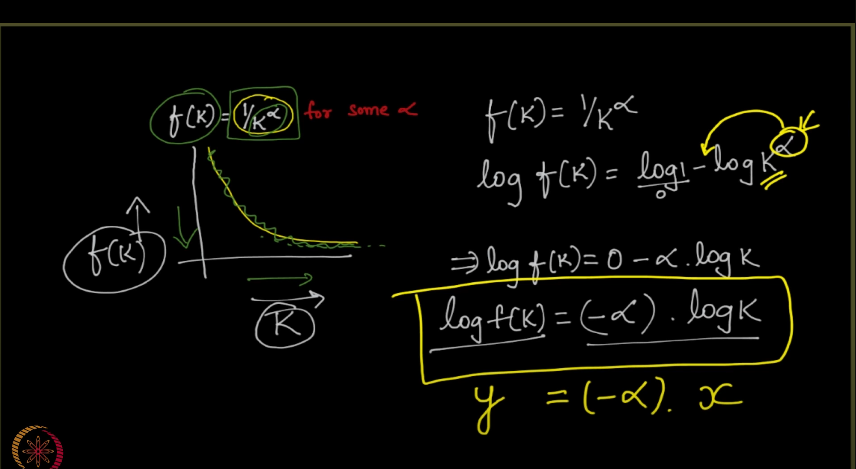 f(K) = 1/K^α for some α
f(K)
K
f(K) = 1/K^α
log f(K) = log 1 - log K^α
0
⇒ log f(K) = 0 - α . log K
log f(K) = (-α) . log K
y = (-α) . x